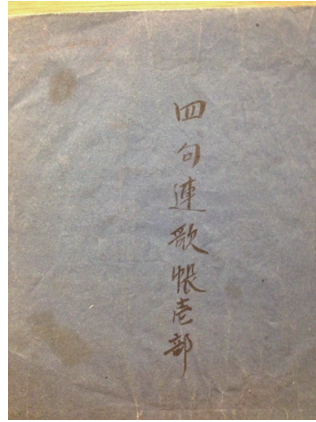 四句連歌帳壱部